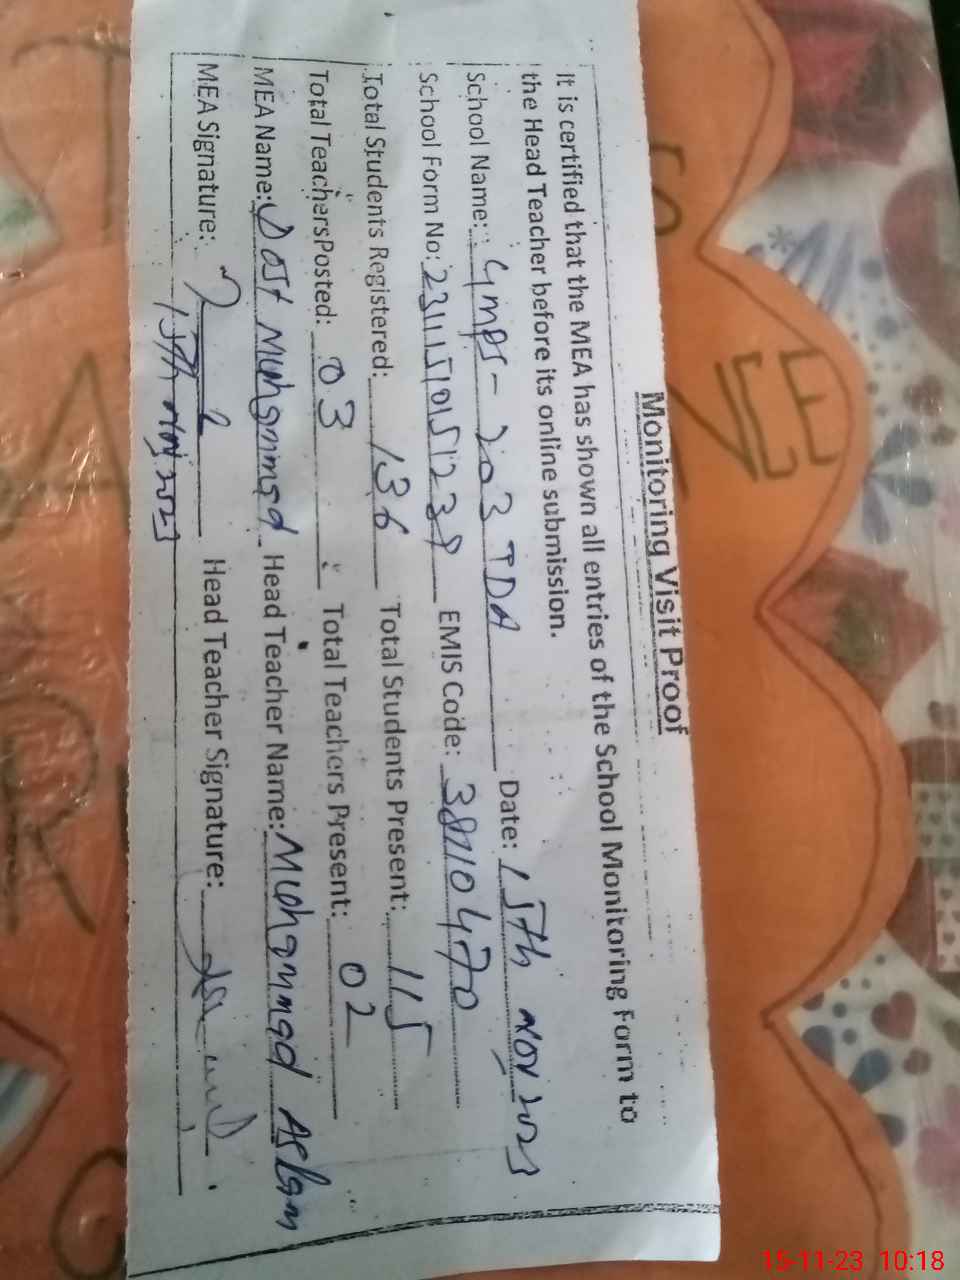 Monitoring Visit Proof
It is certified that the MEA has shown all entries of the School Monitoring Form to
the Head Teacher before its online submission.
School Name: Gmps - 203 TDA Date: 15th Nov 2023
School Form No: EMIS Code: 38110470
Total Students Registered: 136 Total Students Present: 115
Total Teachers Posted: 03 Total Teachers Present: 02
MEA Name: Dost Muhammad Head Teacher Name: Muhammad Aslam
MEA Signature: Head Teacher Signature:
15th Nov 2023
15-11-23 10:18